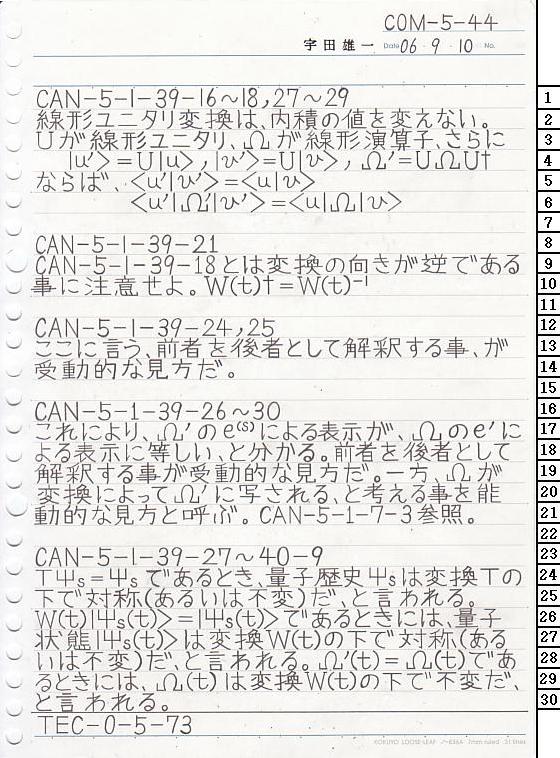 COM-5-44
宇田雄一 Date 06・9・10 No.
CAN-5-1-39-16～18,27～29
線形ユニタリ変換は、内積の値を変えない。
Uが線形ユニタリ、Ωが線形演算子、さらに
|u′>=U|u>,|v′>=U|v>,Ω′=UΩU†
ならば、<u′|v′>=<u|v>
<u′|Ω′|v′>=<u|Ω|v>
CAN-5-1-39-21
CAN-5-1-39-18とは変換の向きが逆である
事に注意せよ。W(t)†=W(t)⁻¹
CAN-5-1-39-24,25
ここに言う、前者を後者として解釈する事、が
受動的な見方だ。
CAN-5-1-39-26～30
これにより、Ω′のe⁽ˢ⁾による表示が、Ωのe′に
よる表示に等しい、と分かる。前者を後者として
解釈する事が受動的な見方だ。一方、Ωが
変換によってΩ′に写される、と考える事を能
動的な見方と呼ぶ。CAN-5-1-7-3参照。
CAN-5-1-39-27～40-9
TΨs=Ψsであるとき、量子歴史Ψsは変換Tの
下で対称(あるいは不変)だ、と言われる。
W(t)|Ψs(t)>=|Ψs(t)>であるときには、量子
状態|Ψs(t)>は変換W(t)の下で対称(ある
いは不変)だ、と言われる。Ω′(t)=Ω(t)であ
るときには、Ω(t)は変換W(t)の下で不変だ、
と言われる。
TEC-0-5-73
KOKUYO LOOSE-LEAF ノ-836A 7mm ruled 31 lines
1
2
3
4
5
6
7
8
9
10
11
12
13
14
15
16
17
18
19
20
21
22
23
24
25
26
27
28
29
30